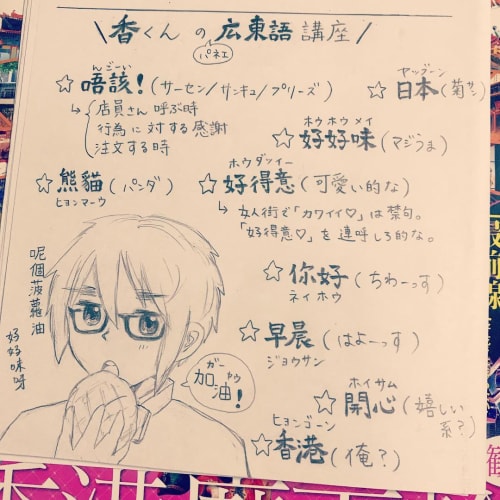 \香くんの広東語講座/
パネエ
んごーい
☆唔該!(サーセン/サンキュ/プリーズ)
→店員さん呼ぶ時
行為に対する感謝
注文する時
ヤップーン
☆日本(菊サン)
ホウホウメイ
☆好好味(マジうま)
☆熊貓(パンダ)
ヒョンマーウ
ホウダッイー
☆好得意(可愛い的な)
→女人街で「カワイイ♡」は禁句。
「好得意♡」を連呼しろ的な。
☆你好(ちわーっす)
ネイホウ
☆早晨(はよーっす)
ジョウサン
ホイサム
☆開心(嬉しい系?)
ヒョンゴーン
☆香港(俺?)
呢個菠蘿油
好好味呀
ガーヤウ
加油!